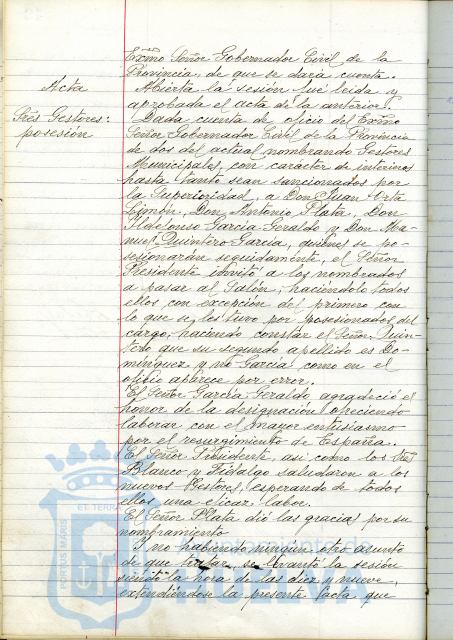 Exmo Señor Gobernador Civil de la
Provincia, de que se dará cuenta.
Acta
Abierta la sesión fué leida y
aprobada el acta de la anterior.
Sres Gestores:
posesión
Dada cuenta de oficio del Exmo
Señor Gobernador Civil de la Provincia
de dos del actual nombrando Gestores
Municipales, con carácter de interinos
hasta tanto sean sancionados por
la Superioridad, a Don Juan
Limón, Don Antonio Plata, Don
Ildefonso Garcia Geraldo y Don Ma-
nuel Quintero Garcia, quienes se po-
sesionarán seguidamente, el Señor
Presidente invitó a los nombrados
a pasar al Salón, haciéndolo todos
ellos con excepción del primero con
lo que se les tuvo por posesionados del
cargo, haciendo constar el Señor Quin-
tero que su segundo apellido es Do-
minguez y no Garcia como en el
oficio aparece por error.
El Señor Garcia Geraldo agradeció el
honor de la designación ofreciendo
laborar con el mayor entusiasmo
por el resurgimiento de España.
El Señor Presidente, asi como los Sres
Blanco y Fidalgo saludaron a los
nuevos Gestores, esperando de todos
ellos una eficaz labor.
El Señor Plata dió las gracias por su
nombramiento
Y no habiendo ningun otro asunto
de que tratar, se levantó la sesión
siendo la hora de las diez y nueve,
extendiéndose la presente acta que
PORTUS MARIS
ET TERRAE
Ayuntamiento de
HUELVA